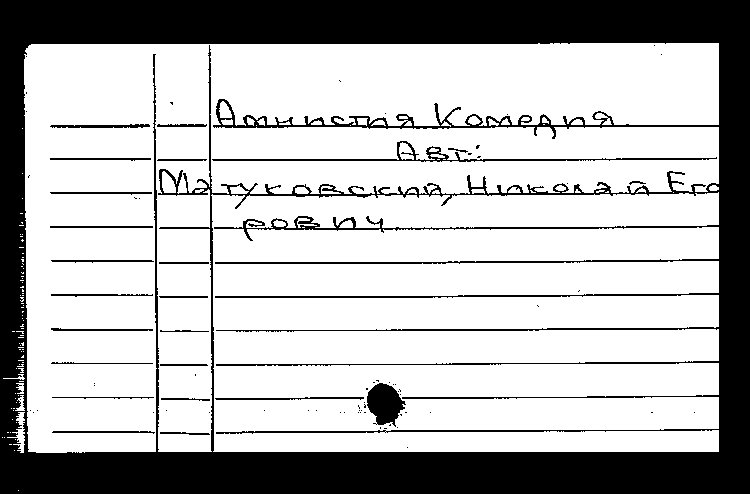 Амнистия Комедия
Авт.:
Матуковский, Николай Его
рович.